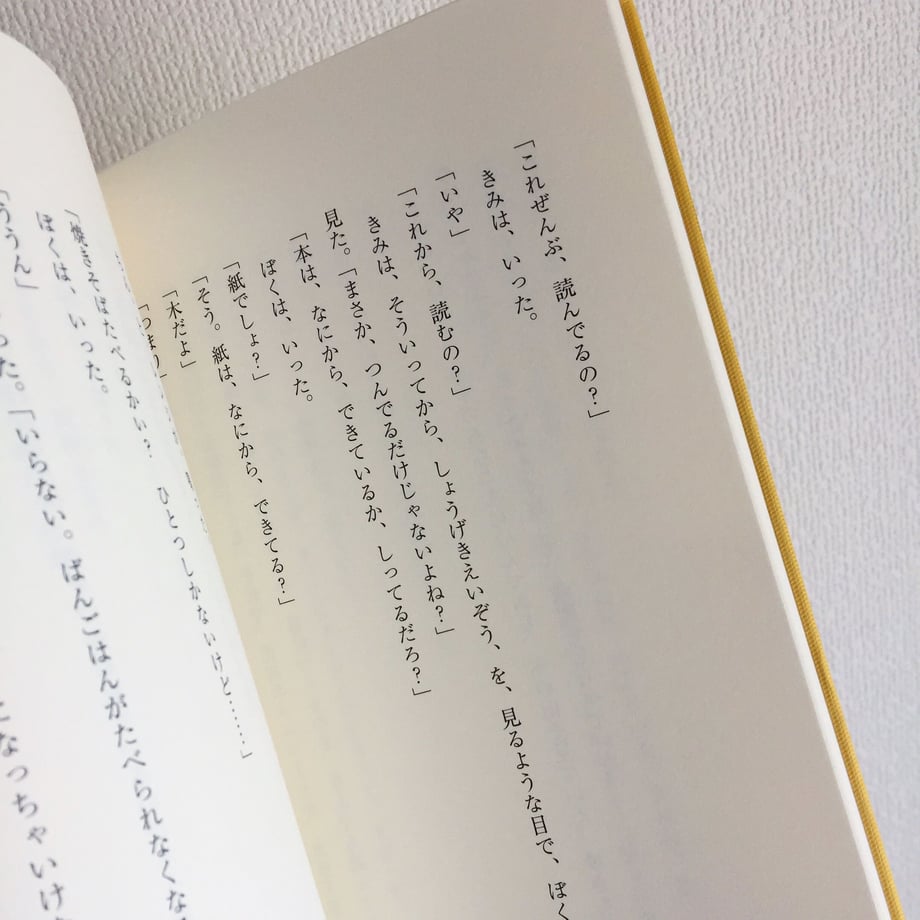 「これぜんぶ、読んでるの?」
きみは、いった。
「いや」
「これから、読むの?」
きみは、そういってから、しょうげきえいぞう、を、見るような目で、ぼく
見た。「まさか、つんでるだけじゃないよね?」
「本は、なにから、できているか、しってるだろ?」
ぼくは、いった。
「紙でしょ?」
「そう。紙は、なにから、できてる?」
「木だよ」
「つまり
「焼きそばたべるかい? ひとつしかないけど……」
ぼくは、いった。
「ううん」
った。「いらない。ばんごはんがたべられなくな
なっちゃいけ